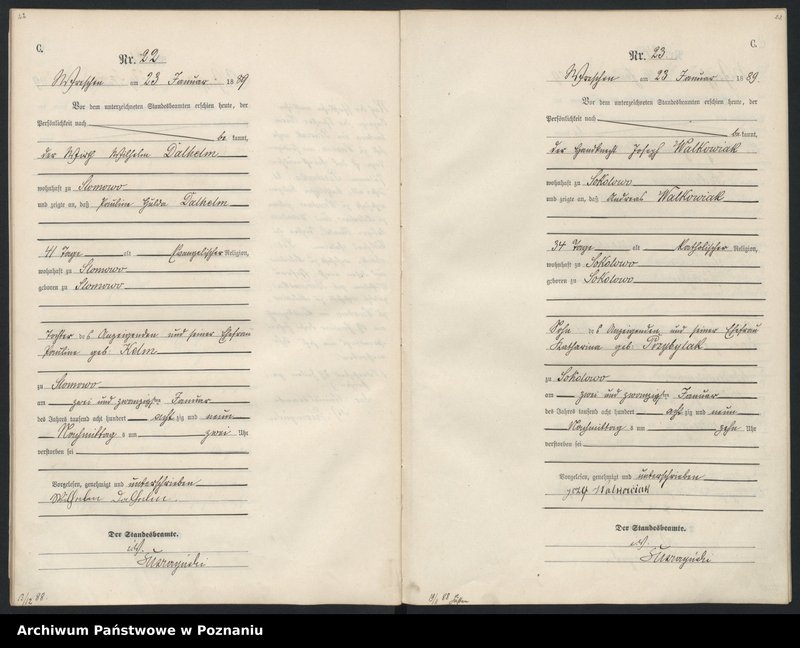 C.
Nr. 22
Wreschen am 23 Januar 1889
Vor dem unterzeichneten Standesbeamten erschien heute, der
Persönlichkeit nach
be kannt,
der Wirth Wilhelm Dalhelm
wohnhaft zu Slomowo
und zeigte an, daß Pauline Hulda Dalhelm
41 Tage alt Evangelischer Religion,
wohnhaft zu Slomowo
geboren zu Slomowo
Tochter des Anzeigenden und seiner Ehefrau
Pauline geb Kelm
zu Slomowo
am zwei und zwanzigsten Januar
des Jahres tausend acht hundert achtzig und neun
Nachmittag s um zwei Uhr
verstorben sei
Vorgelesen, genehmigt und unterschrieben
Wilhelm Dalhelm
Der Standesbeamte.
13/12 88.
C.
Nr. 23.
Wreschen am 23 Januar 1889.
Vor dem unterzeichneten Standesbeamten erschien heute, der
Persönlichkeit nach
be kannt,
der Joseph Walkowiak
wohnhaft zu Sokolowo
und zeigte an, daß Andreas Walkowiak
34 Tage alt Katholischer Religion,
wohnhaft zu Sokolowo
geboren zu Sokolowo
Sohn des Anzeigenden und seiner Ehefrau
Katharina geb. Przybylak
zu Sokolowo
am zwei und zwanzigsten Januar
des Jahres tausend acht hundert achtzig und neun
Nachmittag s um zehn Uhr
verstorben sei
Vorgelesen, genehmigt und unterschrieben
Walkowiak
Der Standesbeamte.
88
Archiwum Państwowe w Poznaniu